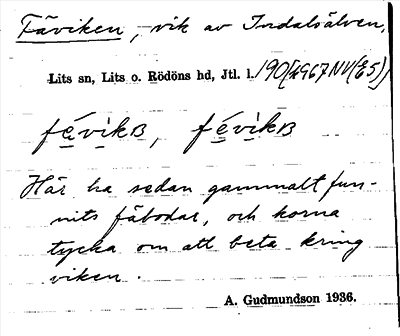 Fäviken, vik av Indalsälven,
Lits sn, Lits o. Rödöns hd, Jtl. l. 190
févikB, févikB
Här ha sedan gammalt fun-
nits fäbodar, och korna
tycka om att beta kring
viken.
A. Gudmundson 1936.